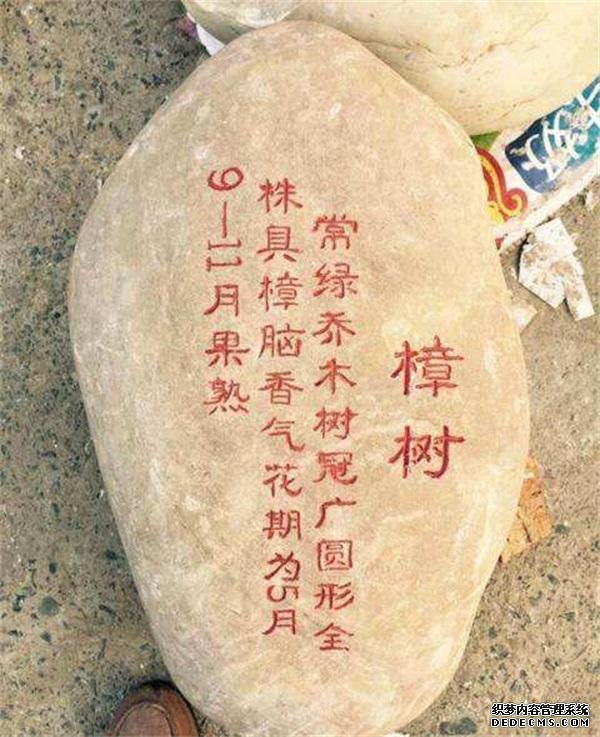 樟树
常绿乔木树冠广圆形全
株具樟脑香气花期为5月
9—11月果熟
织梦内容管理系统
DEDECMS.COM